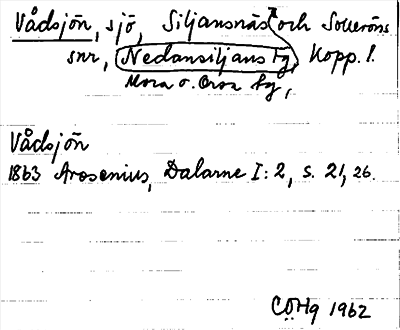 Vådsjön, sjö, Siljansnäs och Solleröns
snr, Nedansiljans tg, Kopp. l.
Mora o. Orsa tg,
Vådsjön
1863 Arosenius, Dalarne I:2, s. 21, 26.
CÖHg 1962